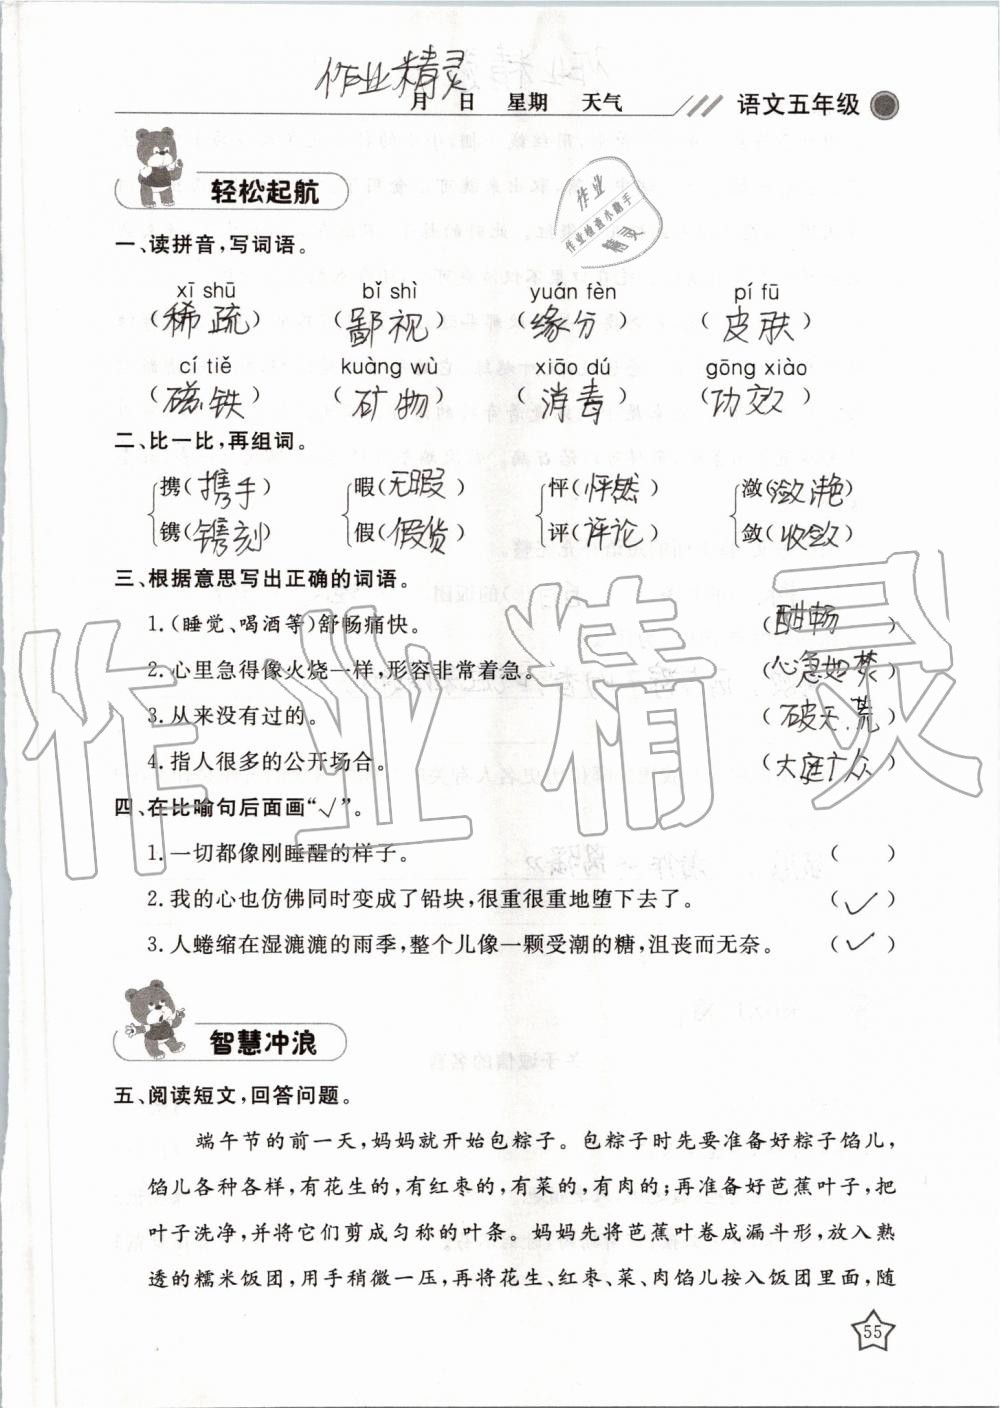 作业精灵
月 日 星期 天气 语文五年级
轻松起航
作业
作业检查小助手
精灵
一、读拼音,写词语。
xī shū bǐ shì yuán fèn pí fū
(稀疏) (鄙视) (缘分) (皮肤)
cí tiě kuàng wù xiāo dú gōng xiào
(磁铁) (矿物) (消毒) (功效)
二、比一比,再组词。
携(携手) 暇(无暇) 怦(怦然) 潋(潋滟)
镌(镌刻) 假(假货) 评(评论) 敛(收敛)
三、根据意思写出正确的词语。
1.(睡觉、喝酒等)舒畅痛快。 (酣畅)
2.心里急得像火烧一样,形容非常着急。 (心急如焚)
3.从来没有过的。 (破天荒)
4.指人很多的公开场合。 (大庭广众)
四、在比喻句后面画“√”。
1.一切都像刚睡醒的样子。 ( )
2.我的心也仿佛同时变成了铅块,很重很重地堕下去了。 (√)
3.人蜷缩在湿漉漉的雨季,整个儿像一颗受潮的糖,沮丧而无奈。 (√)
智慧冲浪
五、阅读短文,回答问题。
端午节的前一天,妈妈就开始包粽子。包粽子时先要准备好粽子馅儿,
馅儿各种各样,有花生的,有红枣的,有菜的,有肉的;再准备好芭蕉叶子,把
叶子洗净,并将它们剪成匀称的叶条。妈妈先将芭蕉叶卷成漏斗形,放入熟
透的糯米饭团,用手稍微一压,再将花生、红枣、菜、肉馅儿按入饭团里面,随
55
作业精灵